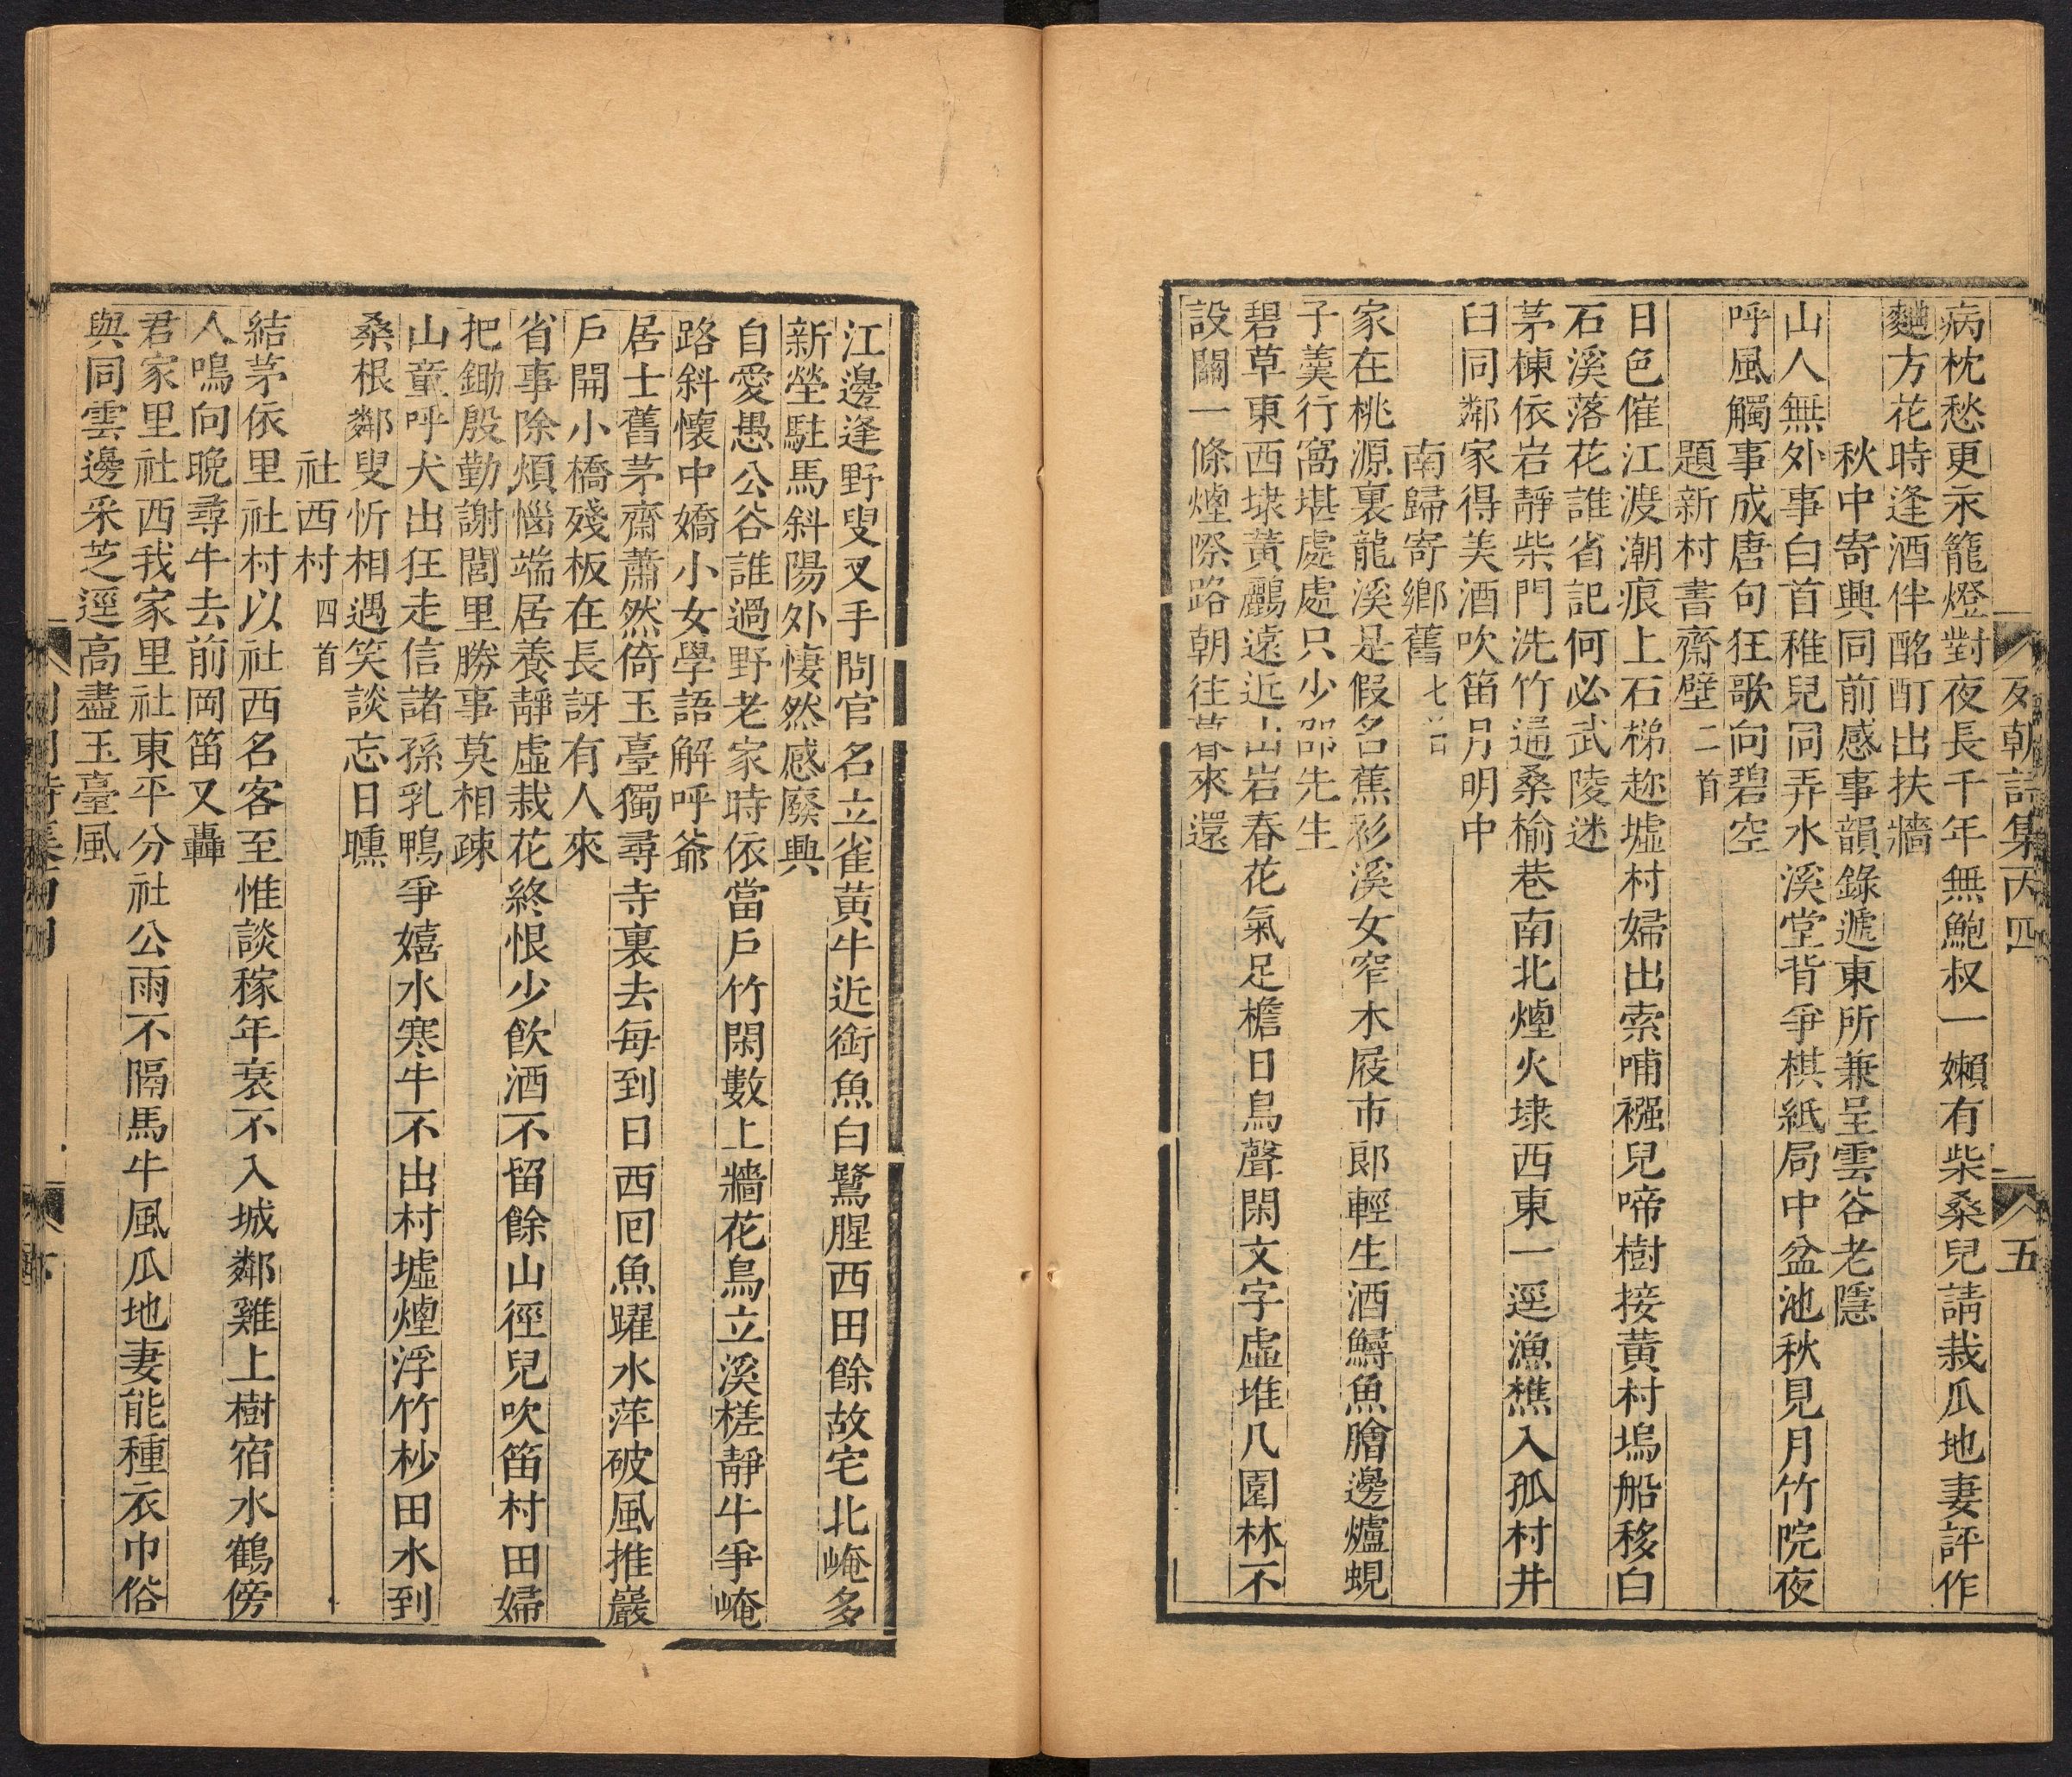 病枕愁更永籠燈對夜長千年無鮑叔一嬾有柴桑兒請栽瓜地妻評作
麯方花時逢酒伴酩酊出扶牆
秋中寄興同前感事韻錄遞東所兼呈雲谷老隱
山人無外事白首稚兒同弄水溪堂背爭棋紙局中盆池秋見月竹院夜
呼風觸事成唐句狂歌向碧空
題新村書齋壁二首
日色催江渡潮痕上石梯趂墟村婦出索哺襁兒啼樹接黃村塢船移白
石溪落花誰省記何必武陵迷
茅棟依岩靜柴門洗竹通桑榆巷南北煙火埭西東一逕漁樵入孤村井
臼同鄰家得美酒吹笛月明中
南歸寄鄉舊七首
家在桃源裏龍溪是假名蕉衫溪女窄木屐市郎輕生酒鱘魚膾邊爐蜆
子羹行窩堪處處只少邵先生
碧草東西埭黃鸝遠近山岩春花氣足檐日鳥聲閑文字虛堆几園林不
設關一條煙際路朝往暮來還
列朝詩集丙四
五
江邊逢野叟叉手問官名立雀黃牛近銜魚白鷺腥西田餘故宅北崦多
新塋駐馬斜陽外悽然感廢興
自愛愚公谷誰過野老家時依當戶竹閑數上牆花鳥立溪槎靜牛爭崦
路斜懷中嬌小女學語解呼爺
居士舊茅齋蕭然倚玉臺獨尋寺裏去每到日西回魚躍水萍破風推巖
戶開小橋殘板在長訝有人來
省事除煩惱端居養靜虛栽花終恨少飲酒不留餘山徑兒吹笛村田婦
把鋤殷勤謝閭里勝事莫相疎
山童呼犬出狂走信諸孫乳鴨爭嬉水寒牛不出村墟煙浮竹杪田水到
桑根鄰叟忻相遇笑談忘日曛
社西村四首
結茅依里社村以社西名客至惟談稼年衰不入城鄰雞上樹宿水鶴傍
人鳴向晚尋牛去前岡笛又轟
君家里社西我家里社東平分社公雨不隔馬牛風瓜地妻能種衣巾俗
與同雲邊采芝逕高盡玉臺風